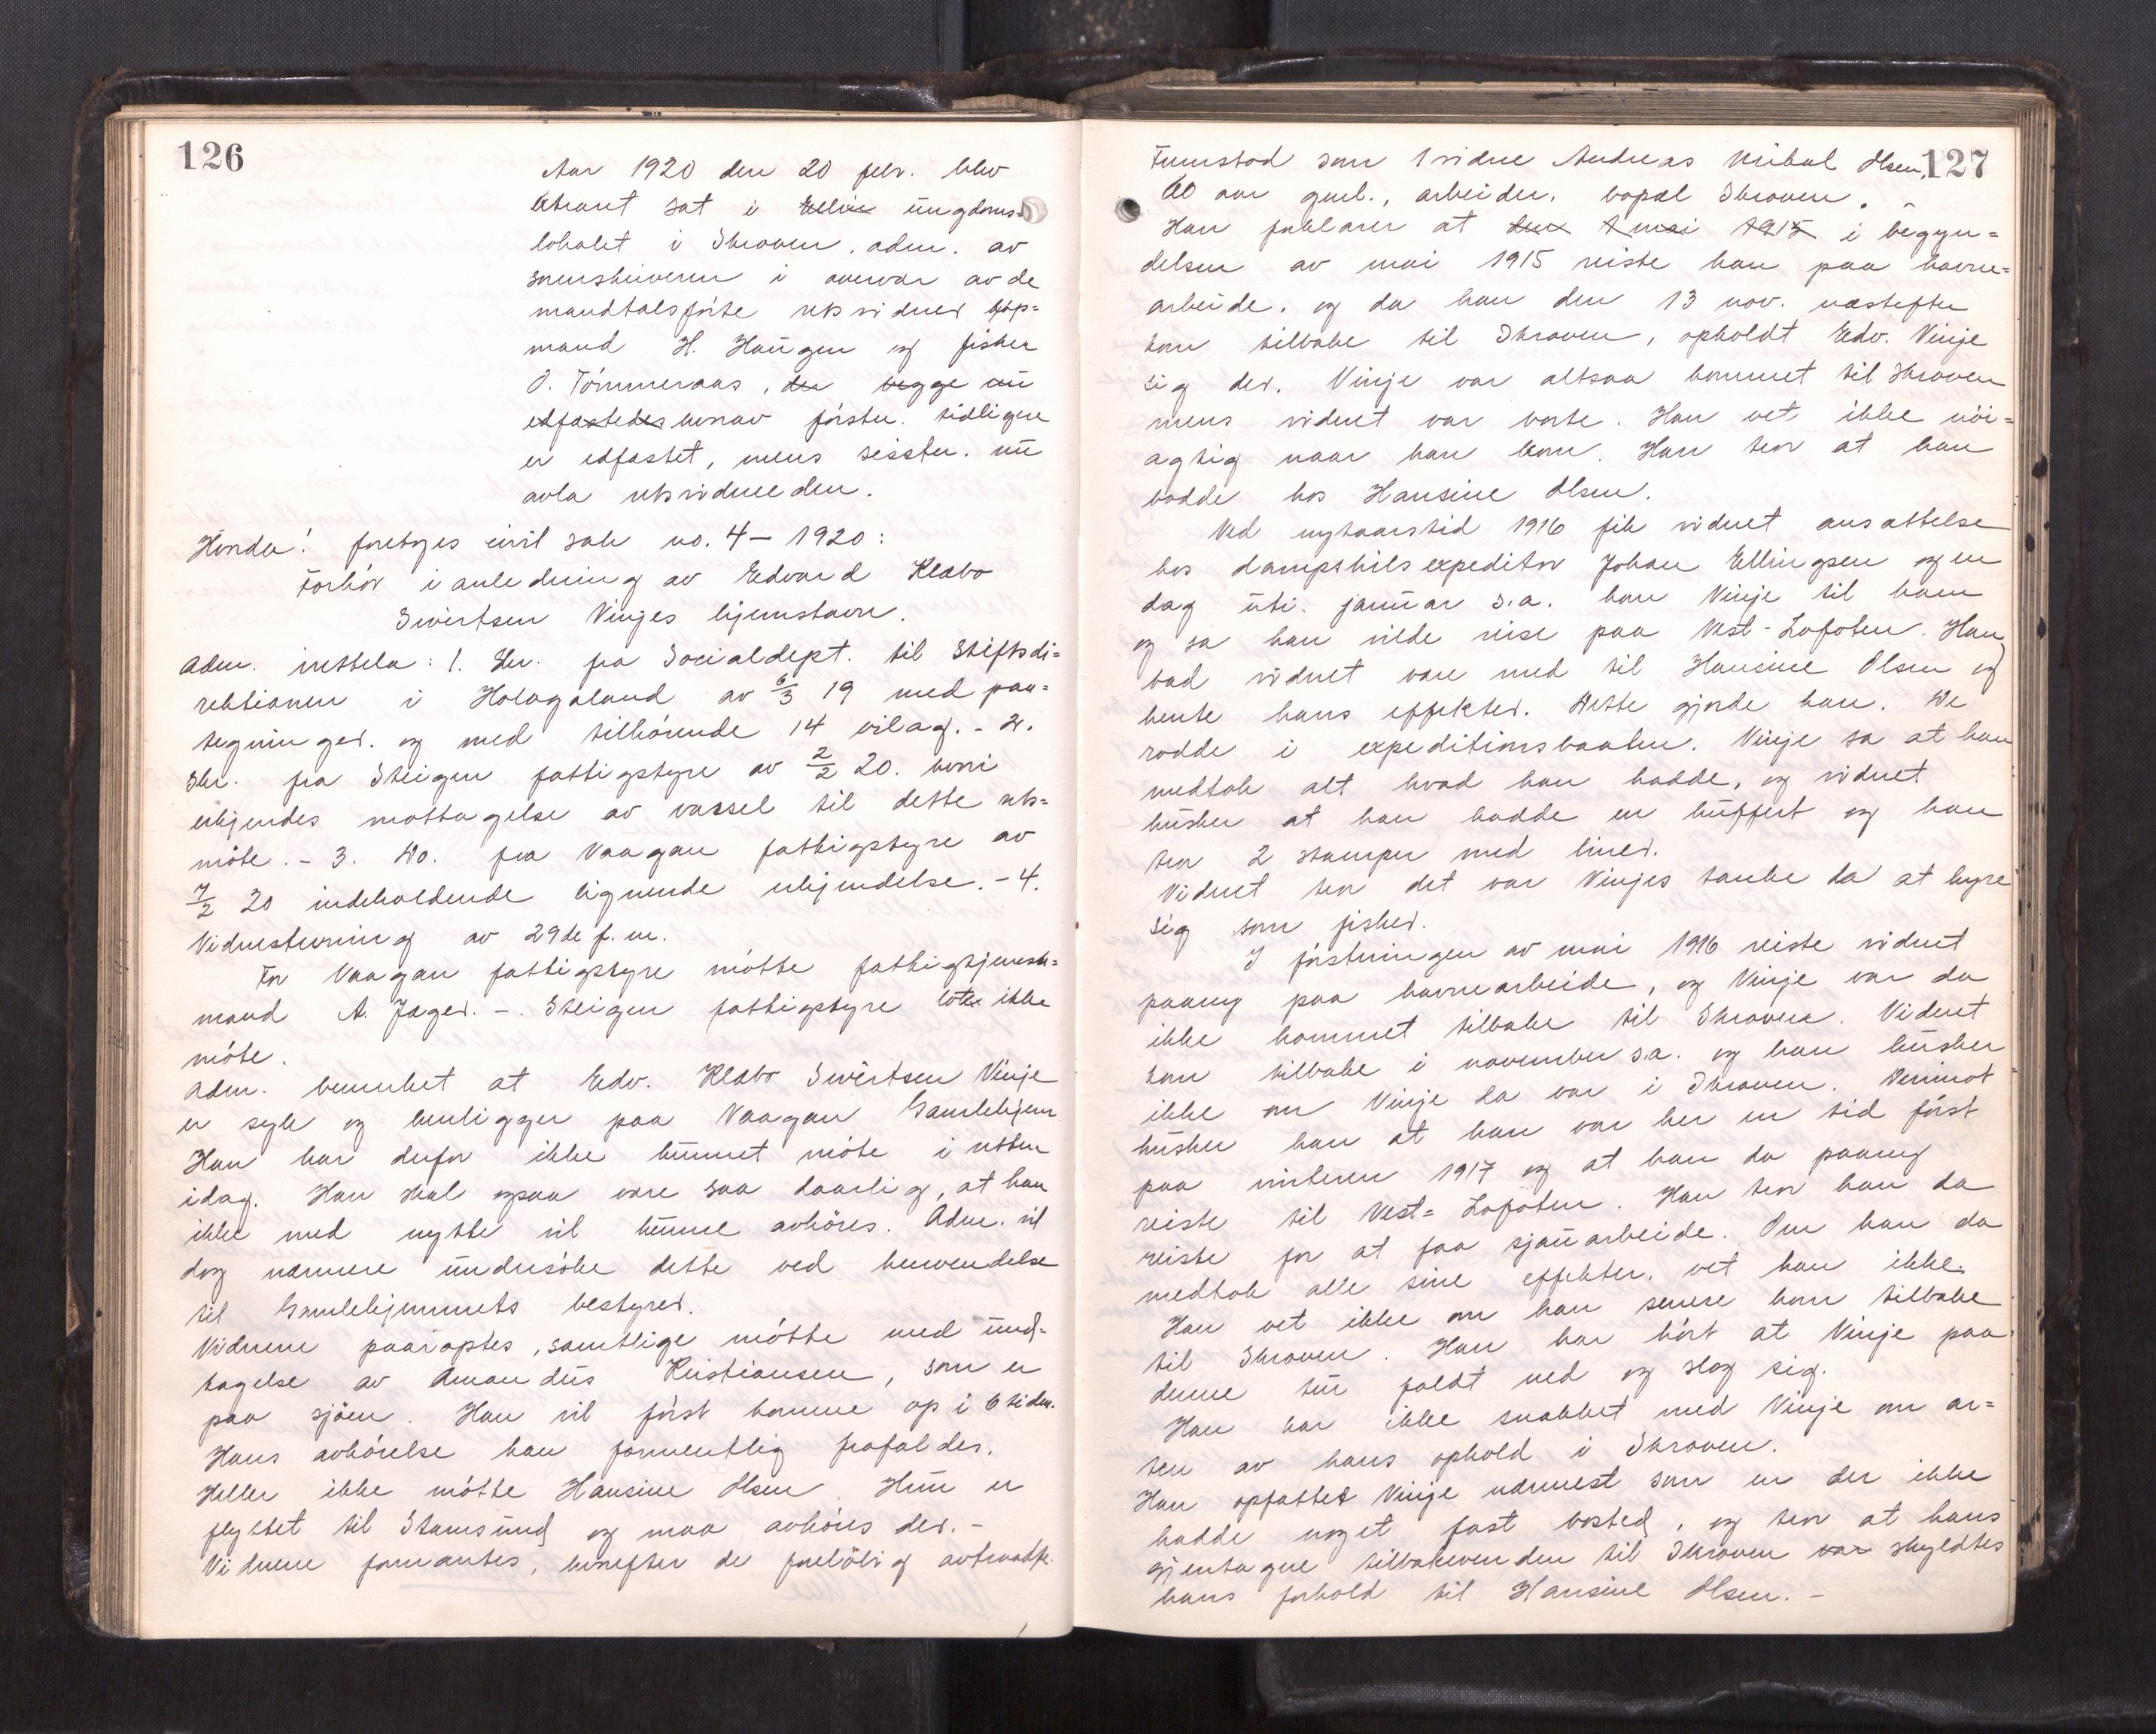 126
Aar 1920 den 20 febr. blev
Ekstraret sat i ungdoms-
lokalet i Skroven, adm. av
sorenskriveren i overvær av de
mandtalsførte retsvidner kjøp-
mand H. Haugen og fisker
O. Tømmeraas, der begge nu
edfæstedes hvorav første. tidligere
er edfæstet, mens sisste. nu
avla retsvidneeden.
Hvorda! foretages civil sak no. 4 - 1920:
Forhør i anledning av Edvard Klæbo
Sivertsen Vinjes hjemstavn.
Adm. irettela: 1. Skr. fra Socialdept. til Stiftsdi-
rektionen i Hålogaland av 6/3 19 med paa-
tegninger. og med tilhørende 14 bilag. - 2.
Skr. fra Steigen fattigstyre av 2/2 20. hvori
erkjendes mottagelse av varsel til dette rets-
møte. - 3. Do. fra Vaagan fattigstyre av
7/2 20 indeholdende lignende erkjendelse. - 4.
Vidnestevning av 29de f. m.
For Vaagan fattigstyre møtte fattigtjenest-
mand A. Jæger. -. Steigen fattigstyre lot ikke
møte.
Adm. bemerket at Edv. Klæbo Sivertsen Vinje
er syk og henligger paa Vaagan Gamlehjem
Han har derfor ikke kunnet møte i retten
idag. Han skal ogsaa være saa daarlig, at han
ikke med nytte vil kunne avhøres. Adm. vil
dog nærmere undersøke dette ved henvendelse
til Gamlehjemmets bestyrer.
Vidnene paaroptes, samtlige møtte med und-
tagelse av Amandus Kristiansen, som er
paa sjøen. Han vil først komme op i 6 tiden.
Hans avhørelse kan formentlig frafaldes.
Heller ikke møtte Hansine Olsen. Hun er
flyttet til Stamsund og maa avhøres der. -
Vidnene formantes, hvorefter de foreløbig avtraadte.
127
Fremstod som 1 vidne Andreas Mikal Olsen,
60 aar gml., arbeider, bopæl Skroven.
Han forklarer at den 1 mai 1915 i begyn-
delsen av mai 1915 reiste han paa havne-
arbeide, og da han den 13 nov. næstefter
kom tilbake til Skroven, opholdt Edv. Vinje
sig der. Vinje var altsaa kommet til Skroven
mens vidnet var borte. Han vet ikke nøi-
agtig naar han kom. Han tror at han
bodde hos Hansine Olsen.
Ved nytaarstid 1916 fik vidnet ansættelse
hos dampskibsexpeditør Johan Ellingsen og en
dag uti. januar s.a. kom Vinje til ham
og sa han vilde reise paa Vest-Lofoten. Han
bad vidnet være med til Hansine Olsen og
hente hans effekter. Dette gjorde han. De
rodde i expeditionsbaaten. Vinje sa at han
medtok alt hvad han hadde, og vidnet
husker at han hadde en kuffert og han
tror 2 stamper med liner.
Vidnet tror det var Vinjes tanke da at hyre
sig som fisker.
I førstningen av mai 1916 reiste vidnet
paany paa havnearbeide, og Vinje var da
ikke kommet tilbake til Skroven. Vidnet
kom tilbake i november s.a. og han husker
ikke om Vinje da var i Skroven. Derimot
husker han at han var her en tid først
paa vinteren 1917 og at han da paany
reiste til Vest-Lofoten. Han tror han da
reiste for at faa sjauarbeide. Om han da
medtok alle sine effekter, vet han ikke.
Han vet ikke om han senere kom tilbake
til Skroven. Han har hørt at Vinje paa
denne tur faldt ned og slog sig.
Han har ikke snakket med Vinje om ar-
ten av hans ophold i Skroven.
Han opfattet Vinje nærmest som en der ikke
hadde noget fast bosted, og tror at hans
gjentagne tilbakevenden til Skroven var skyldtes
hans forhold til Hansine Olsen. -